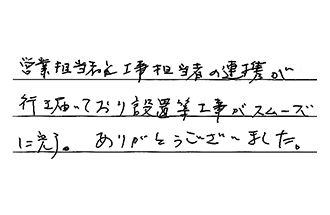 営業担当者と工事担当者の連携が
行き届いており設置等工事がスムーズ
に完了。ありがとうございました。